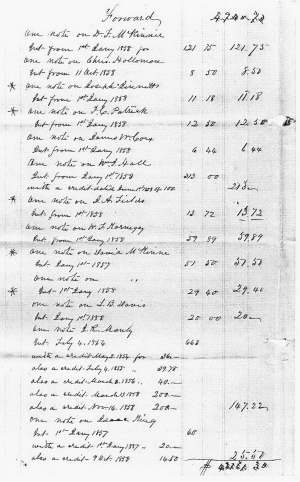 Forward
one note on D. F. McKinnie
Int from 1st Jany 1858 for 121 75 121.75
one note on Chris. Hollomon
Int from 11 Oct 1858 8 50 8.50
* one note on Joseph
Int from 1st Jany 1858 11 18 11.18
* one note on F. C. Patrick
Int from 1st Jany 1858 12 50 12.50
one note on James W Cox
Int from 1st Jany 1858 6 44 6.44
one note on W. Hall
Int from Jany 1st 1858 213 00
with a credit
* one note on J. A. Fields
Int from 1st 1858 13 72 13.72
one note on W. F. Kornegay
Int from 1st Jany 1858 59 89 59.89
* one note on McKinne
Int Jany 1st 1857 51 50 51.50
one note on " "
* Int 1st Jany 1858 29 40 29.40
one note on L. B. Davis
Int Jany 1st 1858 20 00 20 —
one note Manly
Int July 4, 1854 668
with a credit May 2, 1854 for
also a credit July 4, 1855 " 39.78
also a credit March 8, 1856 " 40. —
also a credit March 13, 1858 200 —
also a credit Nov. 16, 1858 200 — 147.22
one note on Isaac King
Int 1st Jany 1857 60
with a credit 1st Jany 1857 " 20 —
also a credit 9 Oct 1858 1450 25.50